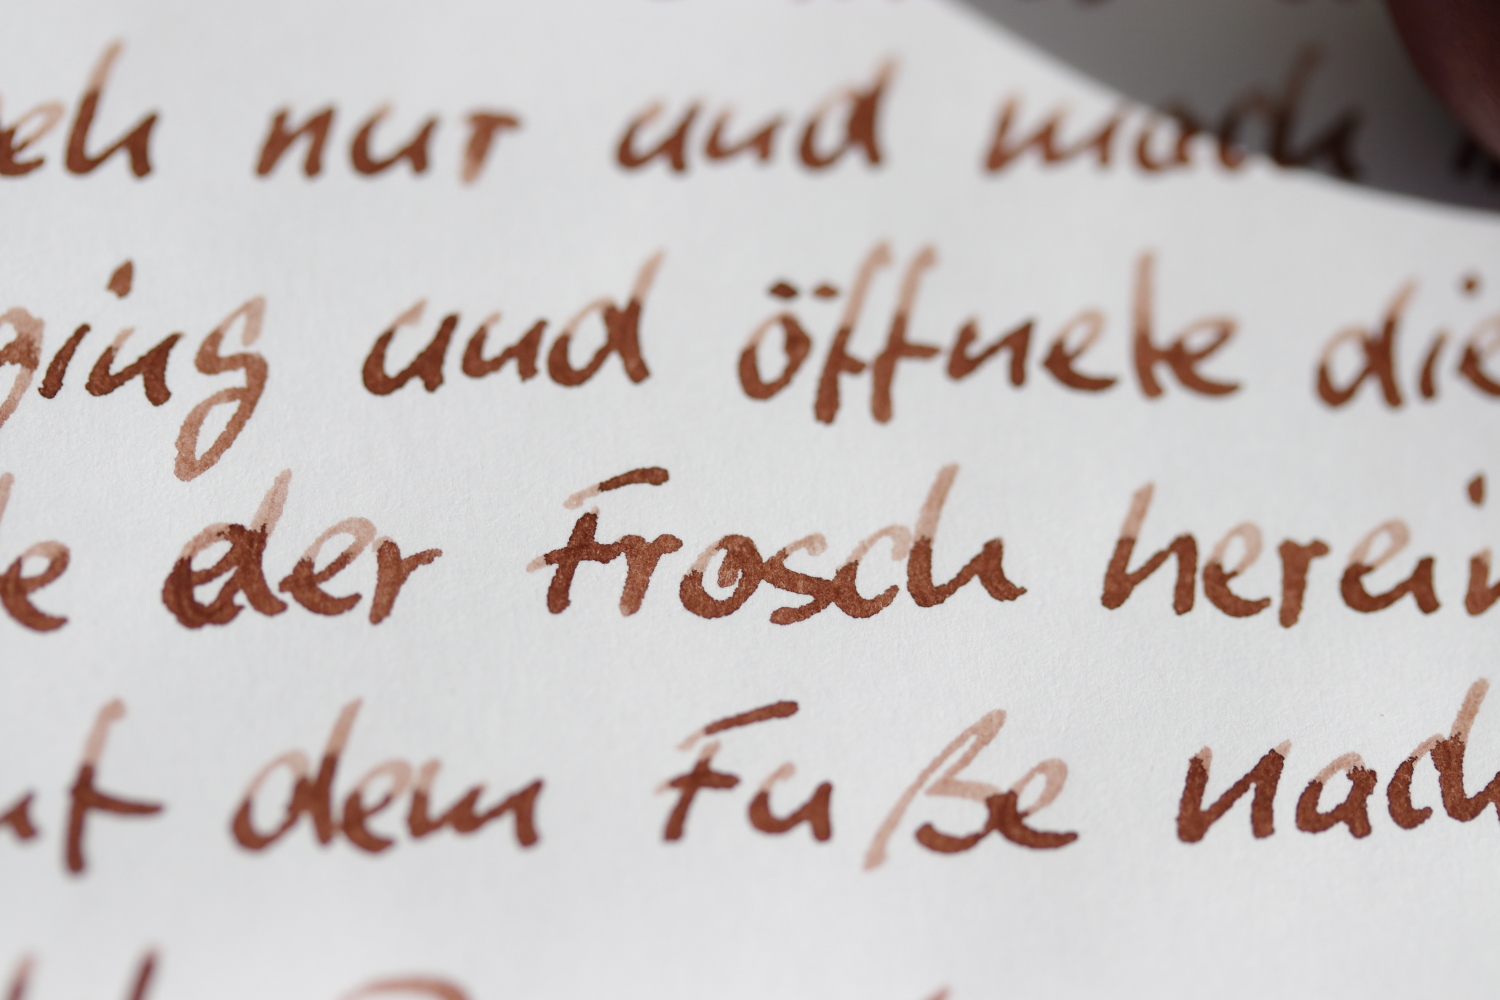 geh nur und mach
ging und öffnete die
der Frosch herein
auf dem Fuße nach